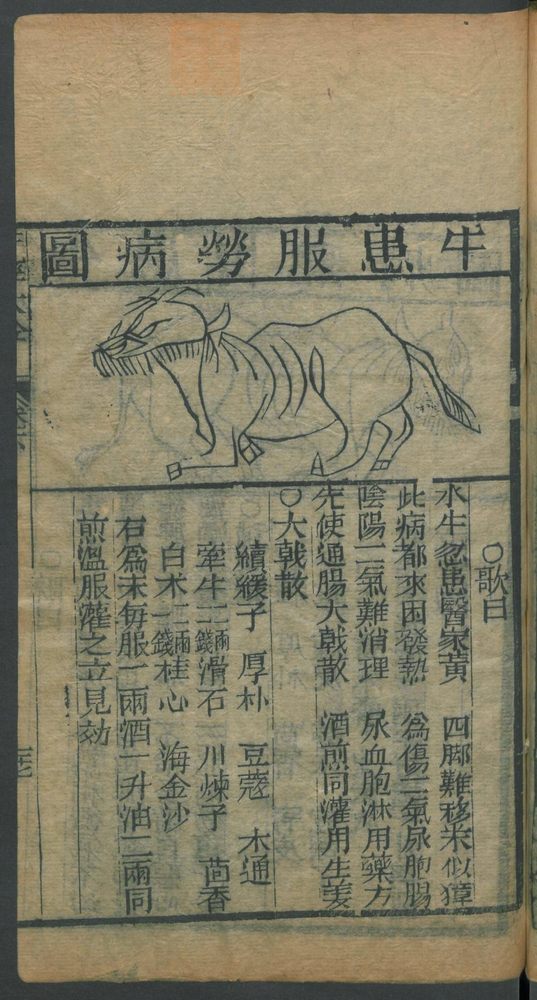 牛患服勞病圖
○歌曰
水牛忽患醫家黄　四脚難移来似獐
此病都來因發熱　爲傷二氣尿胞腸
陰陽二氣難消理　尿血胞淋用藥方
先使通腸大戟散　酒煎同灌用生姜
○大戟散
續緩子　厚朴　豆蔻　木通
牽牛二兩二錢　滑石　川煉子　茴香
白术一兩一錢　桂心　海金沙
右爲末毎服一兩酒一升油二兩同
煎溫服灌之立見効